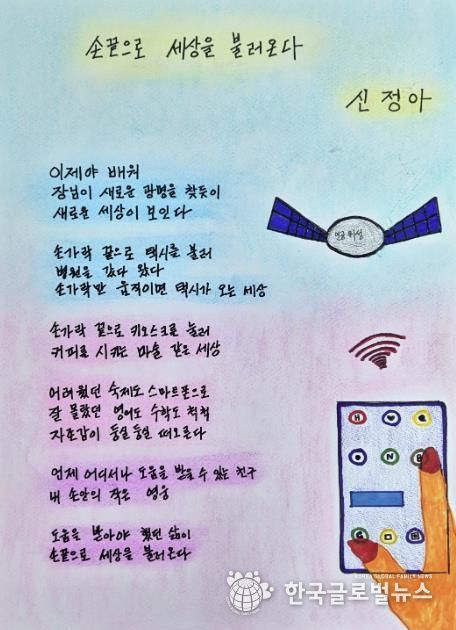 손끝으로 세상을 불러온다
신정아
이제야 배워
장님이 새로운 광명을 찾듯이
새로운 세상이 보인다
손가락 끝으로 택시를 불러
병원을 갔다 왔다
손가락만 움직이면 택시가 오는 세상
손가락 끝으로 키오스크를 눌러
커피를 시키는 마술 같은 세상
어려웠던 숙제도 스마트폰으로
잘 몰랐던 영어도 수학도 척척
자존감이 둥실둥실 떠오른다
언제 어디서나 도움을 받을 수 있는 친구
내 손안의 작은 영웅
도움을 받아야 했던 삶이
손끝으로 세상을 불러온다
인공위성
H
N
G
KOREA GLOBAL FAMILY NEWS
한국글로벌뉴스